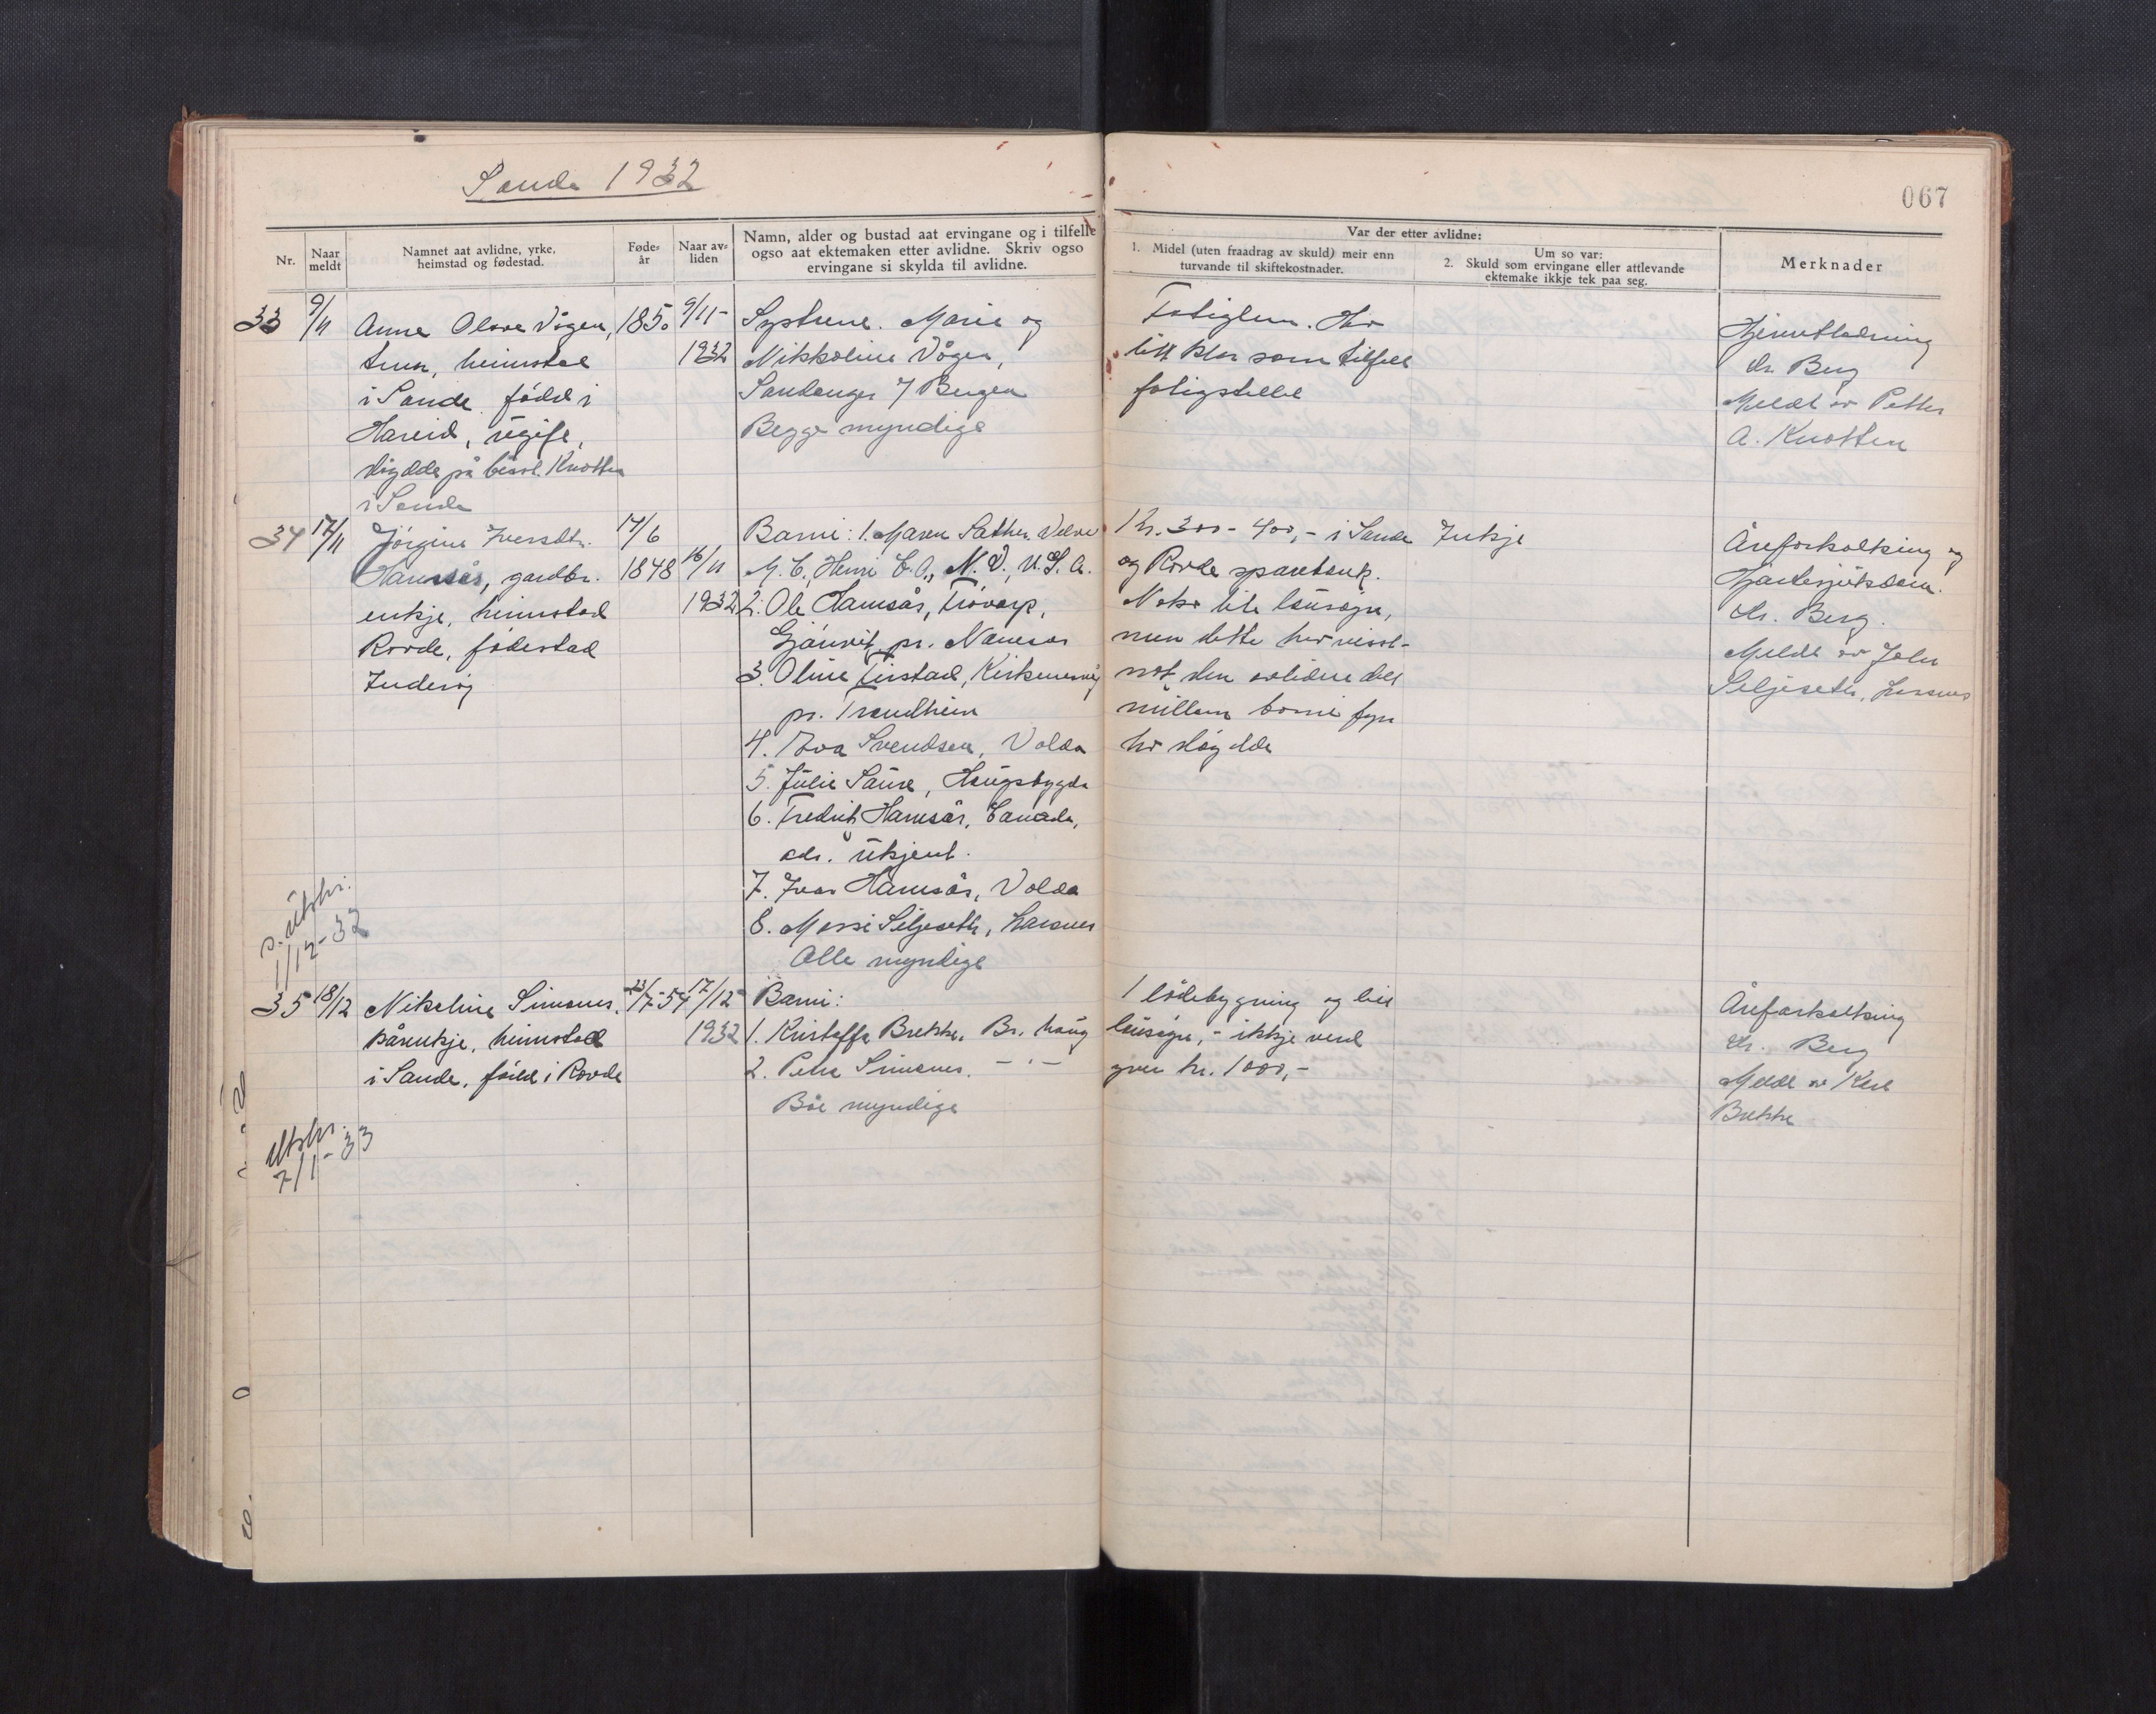 Sande 1932
067
Nr.
Naar meldt
Namnet aat avlidne, yrke, heimstad og fødestad.
Føde-år
Naar av-liden
Namn, alder og bustad aat ervingane og i tilfelle
ogso aat ektemaken etter avlidne. Skriv ogso
ervingane si skylda til avlidne.
Var der etter avlidne:
1. Midel (uten fraadrag av skuld) meir enn
turvande til skiftekostnader.
Um so var:
2. Skuld som ervingane eller attlevande
ektemake ikkje tek paa seg.
Merknader
33 9/11 Anne Olave Vågen, 1850 9/11-
1932
heimstad
i Sande, född i
Hareid, ugift,
døydde på Knotten
i Sande
Systrene. Marie og
Nikkoline Vågen,
Sandanger 7 Bergen
Begge myndige
Fatiglem. Har
litt klær som tilfell
fatigstellet
Hjernebladning
Dr. Berg
Meldt av Petter
A. Knotten
34 17/11 Jörgine Iversdtr. 14/6
Hamsås, gardbr. 1848 16/11
enkje, heimstad 1932
Rovde, födestad
Inderöy
Barni: 1. Maren Sather. Velva
M. C., Henri C. O., N. D., U. S. A.
2. Ole Hamsås,
pr. Namsos
3. Oline Tirstad,
pr. Trondheim
4. Svendsen, Volda
5. Julie Saure, Haugsbygda
6. Fredrik Hamsås, Canada,
adr. ukjent.
7. Ivar Hamsås, Volda
8. Massi Seljeseth, Larsnes
Alle myndige
Kr. 300 - 400,- i Sande
og Rovde sparebank.
Noko lite lausøyre,
men dette har visst-
nok den avlidne delt
millom borni fyrr
ho døydde
Inkje
Åreforkalking og
Hjartesjukdom.
Dr. Berg.
Meldt av John
Seljeseth, Larsnes
s. utskr.
1/12-32
35 18/12 Nikoline Simones. 23/7-54 17/12
kårenkje, heimstad 1932
i Sande, född i Rovde
Barni:
1. Kristoffa Brekke, Br. haug
2. Petra Simones. - " -
Båe myndige
1 lödebygning og litt
lausøyre, - ikkje verd
yver kr. 1000,-
Åreforkalking
Dr. Berg
Meldt av Karl
Brekke
Utskr.
7/1-33